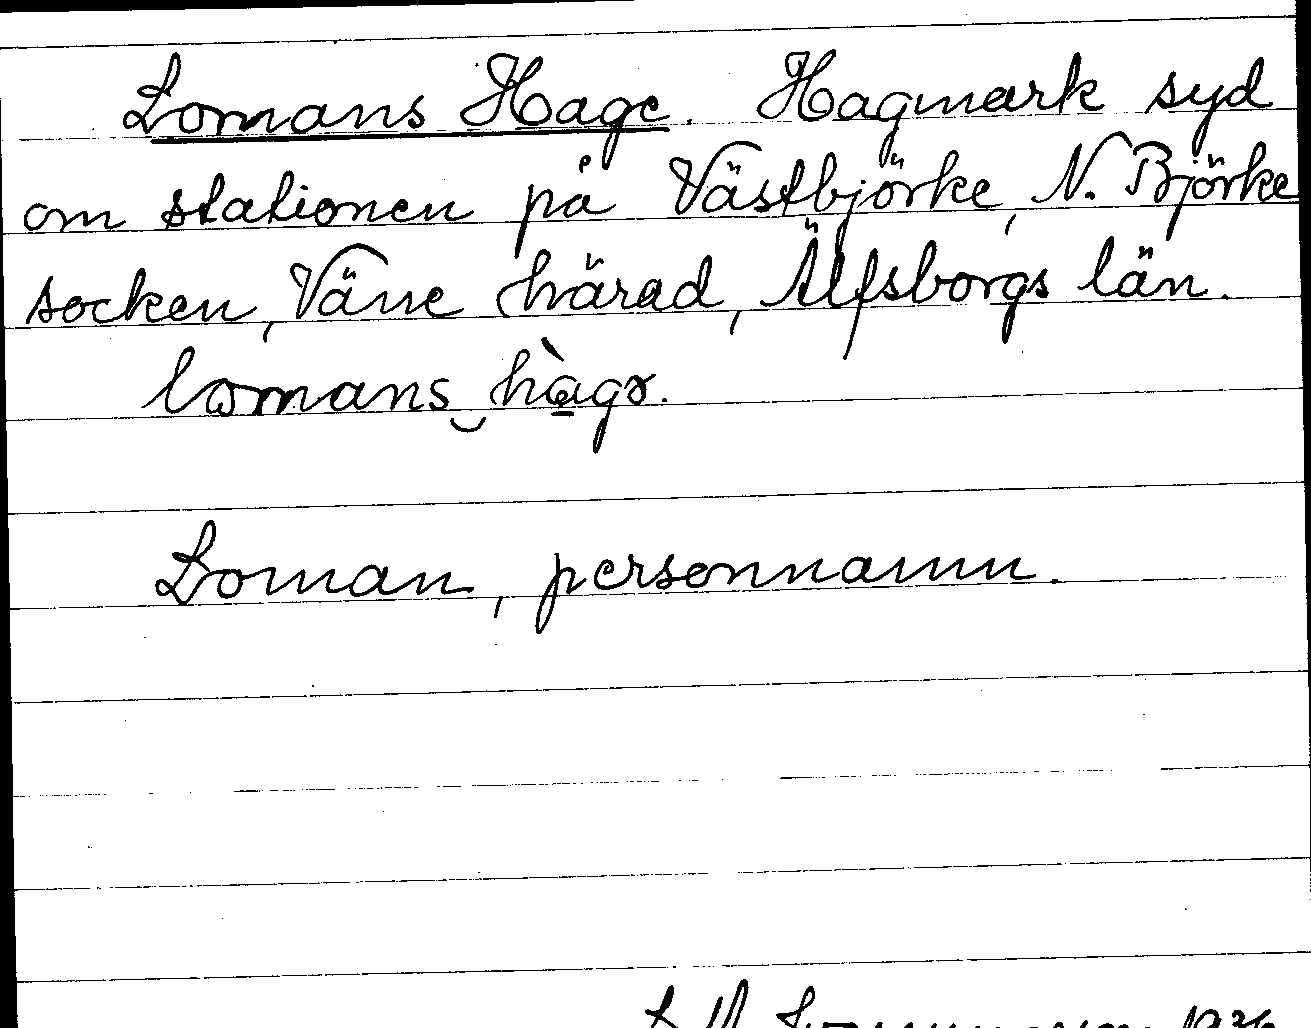 Lomans Hage. Hagmark syd
om stationen på Västbjörke, N. Björke
socken, Väne härad, Älfsborgs län.
lomans hàgɤ.
Loman, personnamn.